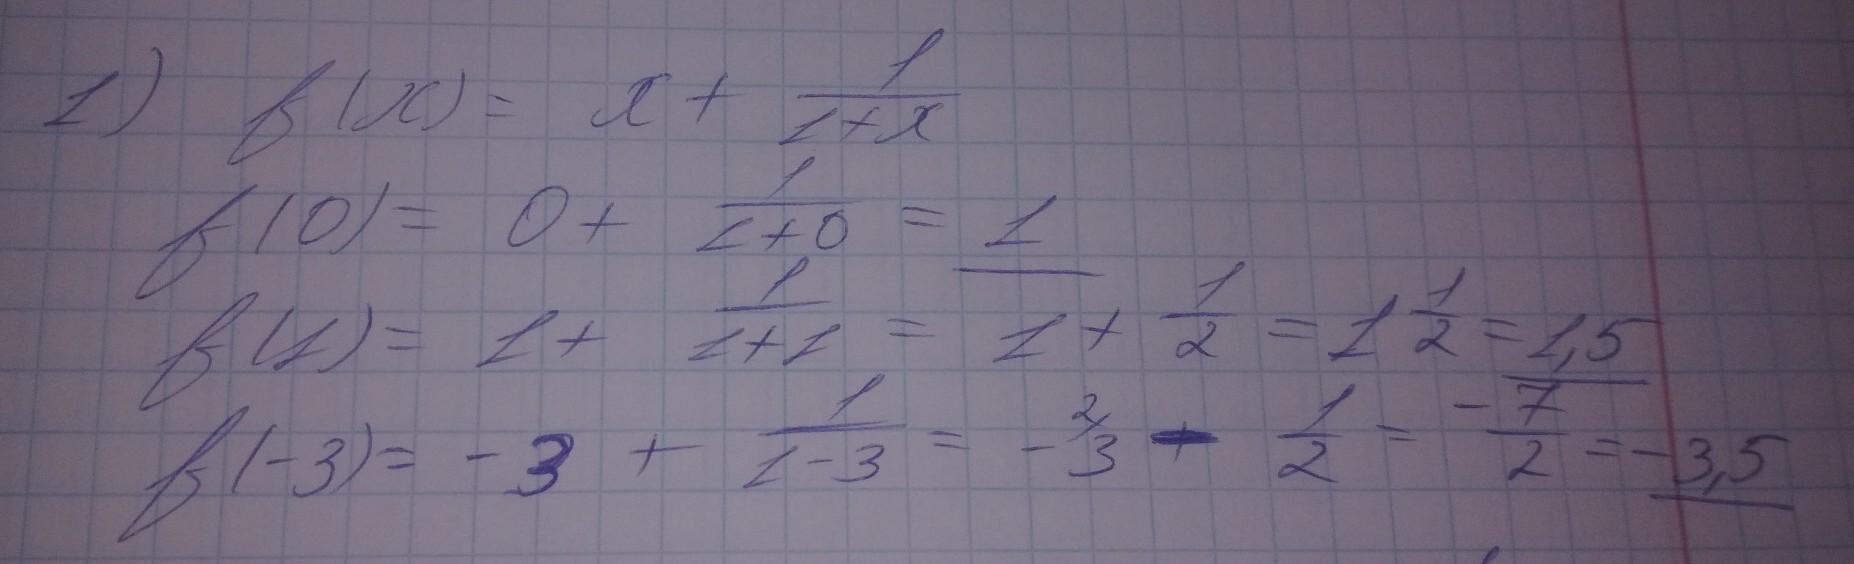 1) f(x) = x + 1/(1+x)
f(0) = 0 + 1/(1+0) = 1
f(1) = 1 + 1/(1+1) = 1 + 1/2 = 1 1/2 = 1,5
f(-3) = -3 + 1/(1-3) = -3^(2/ - 1/2 = -7/2 = -3,5